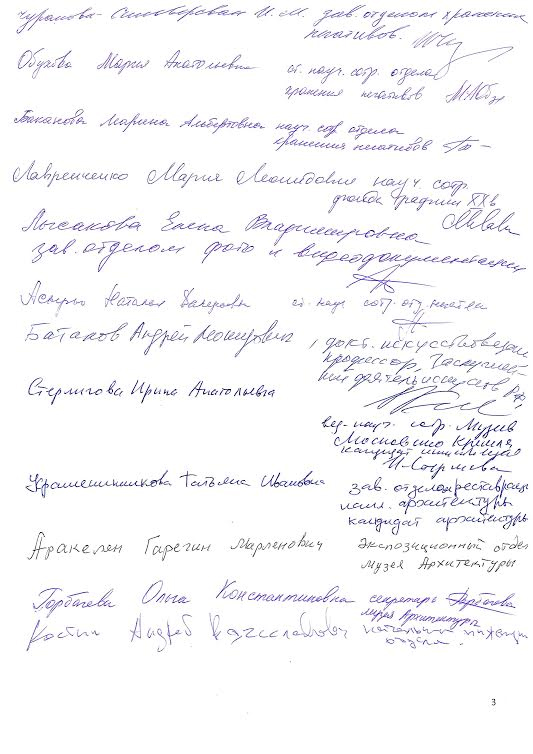 зав. отделом хранения
негативов.
Обухова Мария Анатольевна ст. науч. сотр. отдела
хранения негативов
Баканова Марина Альбертовна науч. сотр. отдела
хранения негативов
Лавренченко Мария Леонидовна науч. сотр.
фонда графики XXв
Лысакова Елена Владимировна
зав. отделом фото и видеодокументации
Наталья Валерьевна ст. науч. сотр. отд.
Баталов Андрей Леонидович, докт. искусствоведения
профессор, Заслужен-
ный деятель искусств РФ,
Стерлигова Ирина Анатольевна
вед. науч. сотр. Музеев
Московского Кремля
кандидат
Крашенинникова Татьяна Ивановна зав. отделом реставрации
памят. архитектуры
кандидат архитектуры
Аракелян Гарегин Марленович Экспозиционный отдел
музея Архитектуры
Горбачева Ольга Константиновна секретарь
музея Архитектуры
Костин Андрей Вячеславович
3